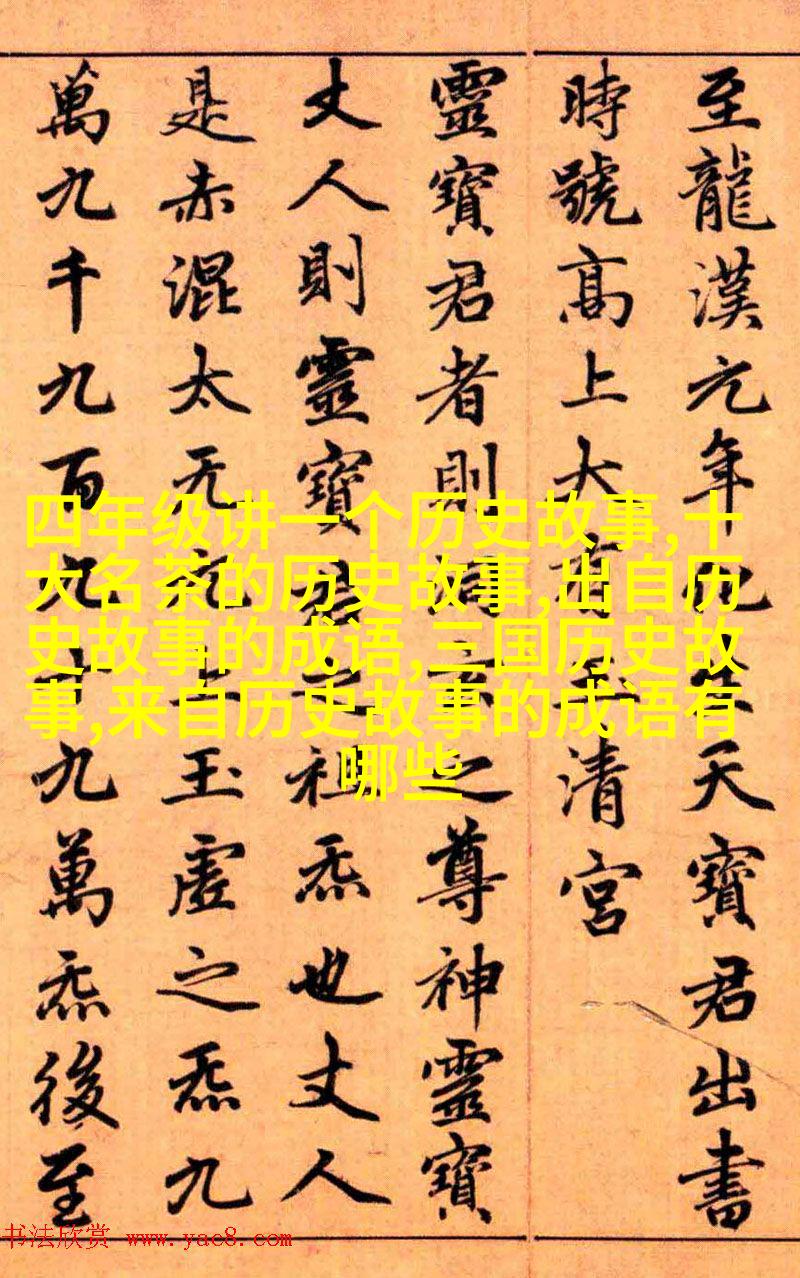 至龍漢元年化生天寶君出書
時號高上大有玉清宮
靈寶君者則洞玄之尊神靈寶
丈人則靈寶君之祖炁也丈人
是赤混太无元上玉虛之炁九
萬九千九百九十九萬炁後至
四年级讲一个历史故事,十
大名茶的历史故事,出自历
史故事的成语,三国历史故
事,来自历史故事的成语有
哪些
书法欣赏 www.yac8.com